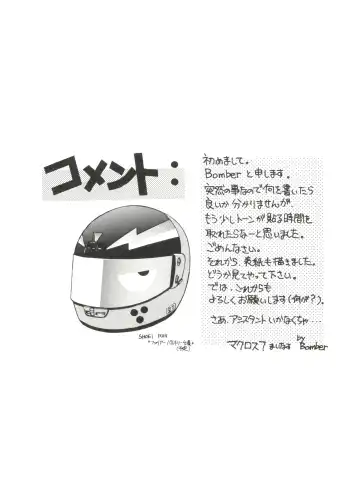 コメント:
初めまして。
Bomberと申します。
突然の事なので何を書いたら
良いか分かりませんが、
もう少しトーンが貼る時間を
取れたらなーと思いました。
ごめんなさい。
それから、表紙も描きました。
どうか見てやって下さい。
では、これからも
よろしくお願いします(何が?)。
さあ、アシスタントいかなくちゃ…
by
マクロス7 Bomber
SHOEI